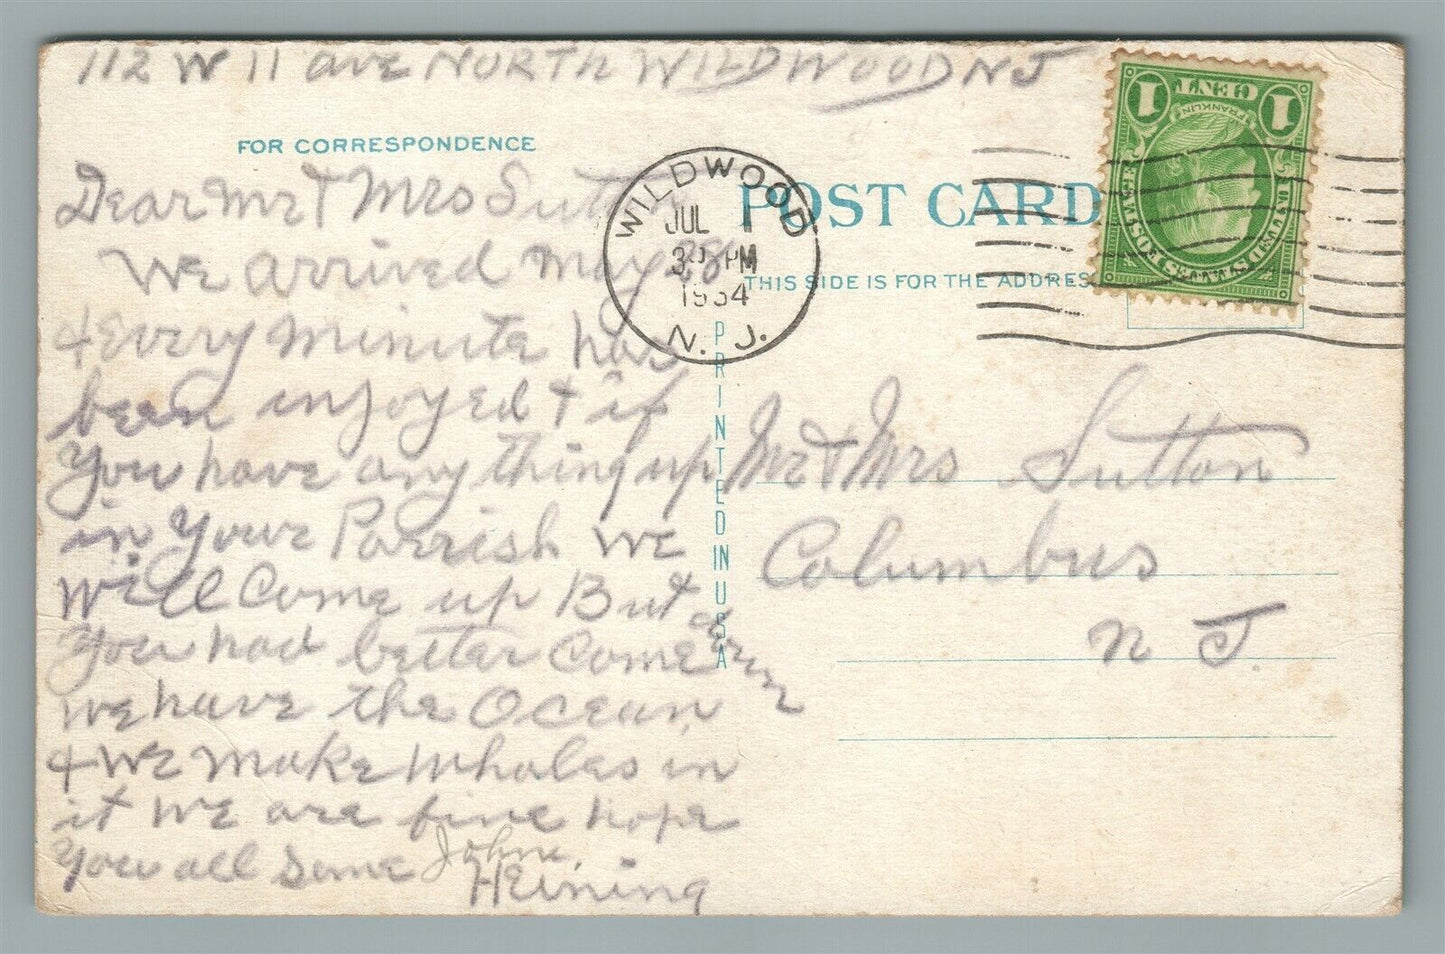 112 W 11 ave NORTH WILDWOOD N J
FOR CORRESPONDENCE
Dear Mr & Mrs Sutt
We arrived May 28
& Every Minute has
been injoyed & if
You have any thing up
in Your Parrish we
will Come up But
You had better Come down
we have the Ocean
& we make Wholes in
it we are fine hope
You all Same John
Heining
WILDWOOD
JUL 1
3 PM
1934
N. J.
POST CARD
THIS SIDE IS FOR THE ADDRES
PRINTED IN USA
1 CENT 1
FRANKLIN
UNITED STATES POSTAGE
Mr & Mrs Sutton
Columbus
N J.